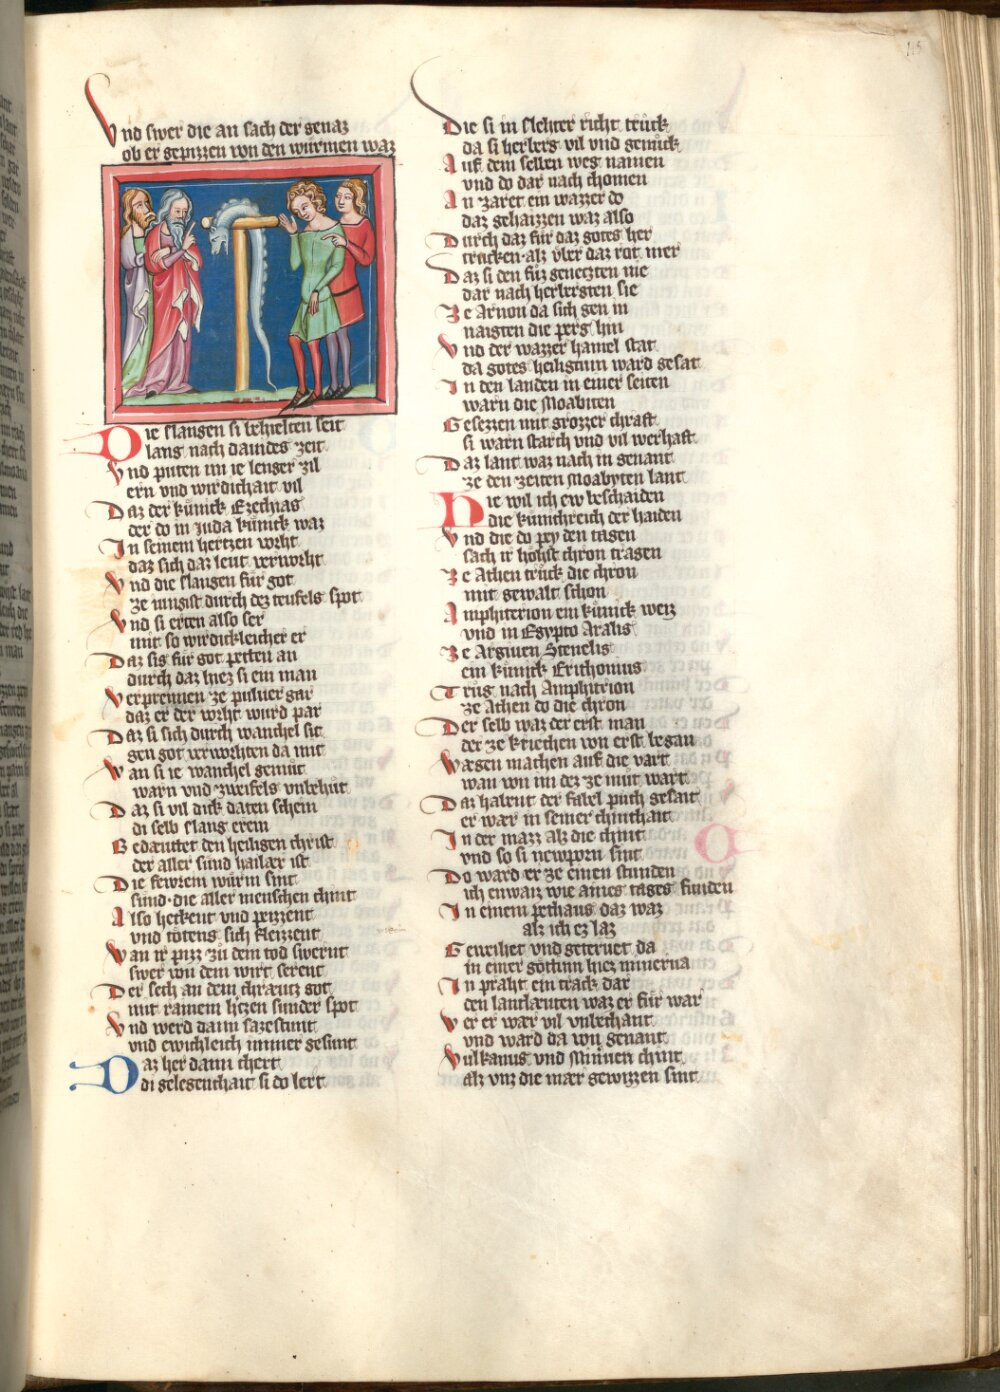 115
Vnd swer die an sach der genaz
ob er gepizzen von den würmen waz
Die slangen si behielten seit
lang nach dauides zeit
Vnd puten im ie lenger zil
ern vnd wirdichait vil
Daz der künick Ezechias
der do in Juda künick waz
In seinem hertzen vorht
daz sich daz leut verworht
Vnd die slangen für got
ze jungist durch dez teufels spot
Vnd si erten also ser
mit so wirdickleicher er
Daz sis für got petten an
durch daz hiez si ein man
Verprennen ze puluer gar
daz er der vorht wurd par
Daz si sich durch wanchel sit
gen got verworhten da mit
Wan si ie wanchel gemüt
warn vnd zweifels vnbehüt
Daz si vil dick daten schein
di selb slang erein
Bedæutet den heiligen christ
der aller sünd hailær ist
Die fewrein würm sint
sünd die aller menschen chint
Also heckent vnd peizzent
vnd tötens sich fleizzent
Wan ir pizz zü dem tod swernt
swer von dem wirt serent
Der sech an dem chræutz got
mit rainem hitzen sunder spot
Vnd werd dann sazestunt
vnd ewichleich immer gesunt
Daz her dann chert
di gelegenhait si do lert
Die si in slehter richt trück
da si herberg vil vnd genück
Auf dem selben weg namen
vnd do dar nach chomen
An zaret ein wazzer do
daz gehaizzen waz also
Durch daz für daz gotes her
trucken als vber daz rot mer
Daz si den füz genetzten nie
dar nach herbergten sie
Ze Arnon da sich gen in
naigten die perg hin
Vnd der wazzer hamel stat
da gotes heiligtum ward gesat
In den landen in einer seiten
warn die Moabiten
Gesezzen mit grozzer chraft
si warn starch vnd vil werhaft
Daz lant waz nach in genant
ze den zeiten Moabyten lant
Hie wil ich ew beschaiden
die künichreich der haiden
Vnd die do pey den tagen
sach ir höhst chron tragen
Ze Athen trück die chron
mit gewalt schon
Amphiterion ein künick weiz
vnd in Egypto Aralis
Ze Argiuen Stenelis
ein künick Erithonius
Trüg nach Amphitrion
ze Athen do die chron
Der selb waz der erst man
der ze kriechen von erst began
Wægen machen auf die vart
wan von im dez ze müt wart
Daz habent der fabel püch gesait
er wær in seiner chinthait
In der mazz als die chint
vnd so si newporn sint
Do ward er ze einen stunden
ich enwaiz wie aines tages funden
In einem pethaus daz waz
als ich ez laz
Geweihet vnd geteruet da
in einer göttinn hiez minerua
In praht ein track dar
den lantlæuten waz er für war
Ver er wær vil vnbechant
vnd ward da von genant
Vulkanus vnd Minnen chint
als vnz die mær gewizzen sint